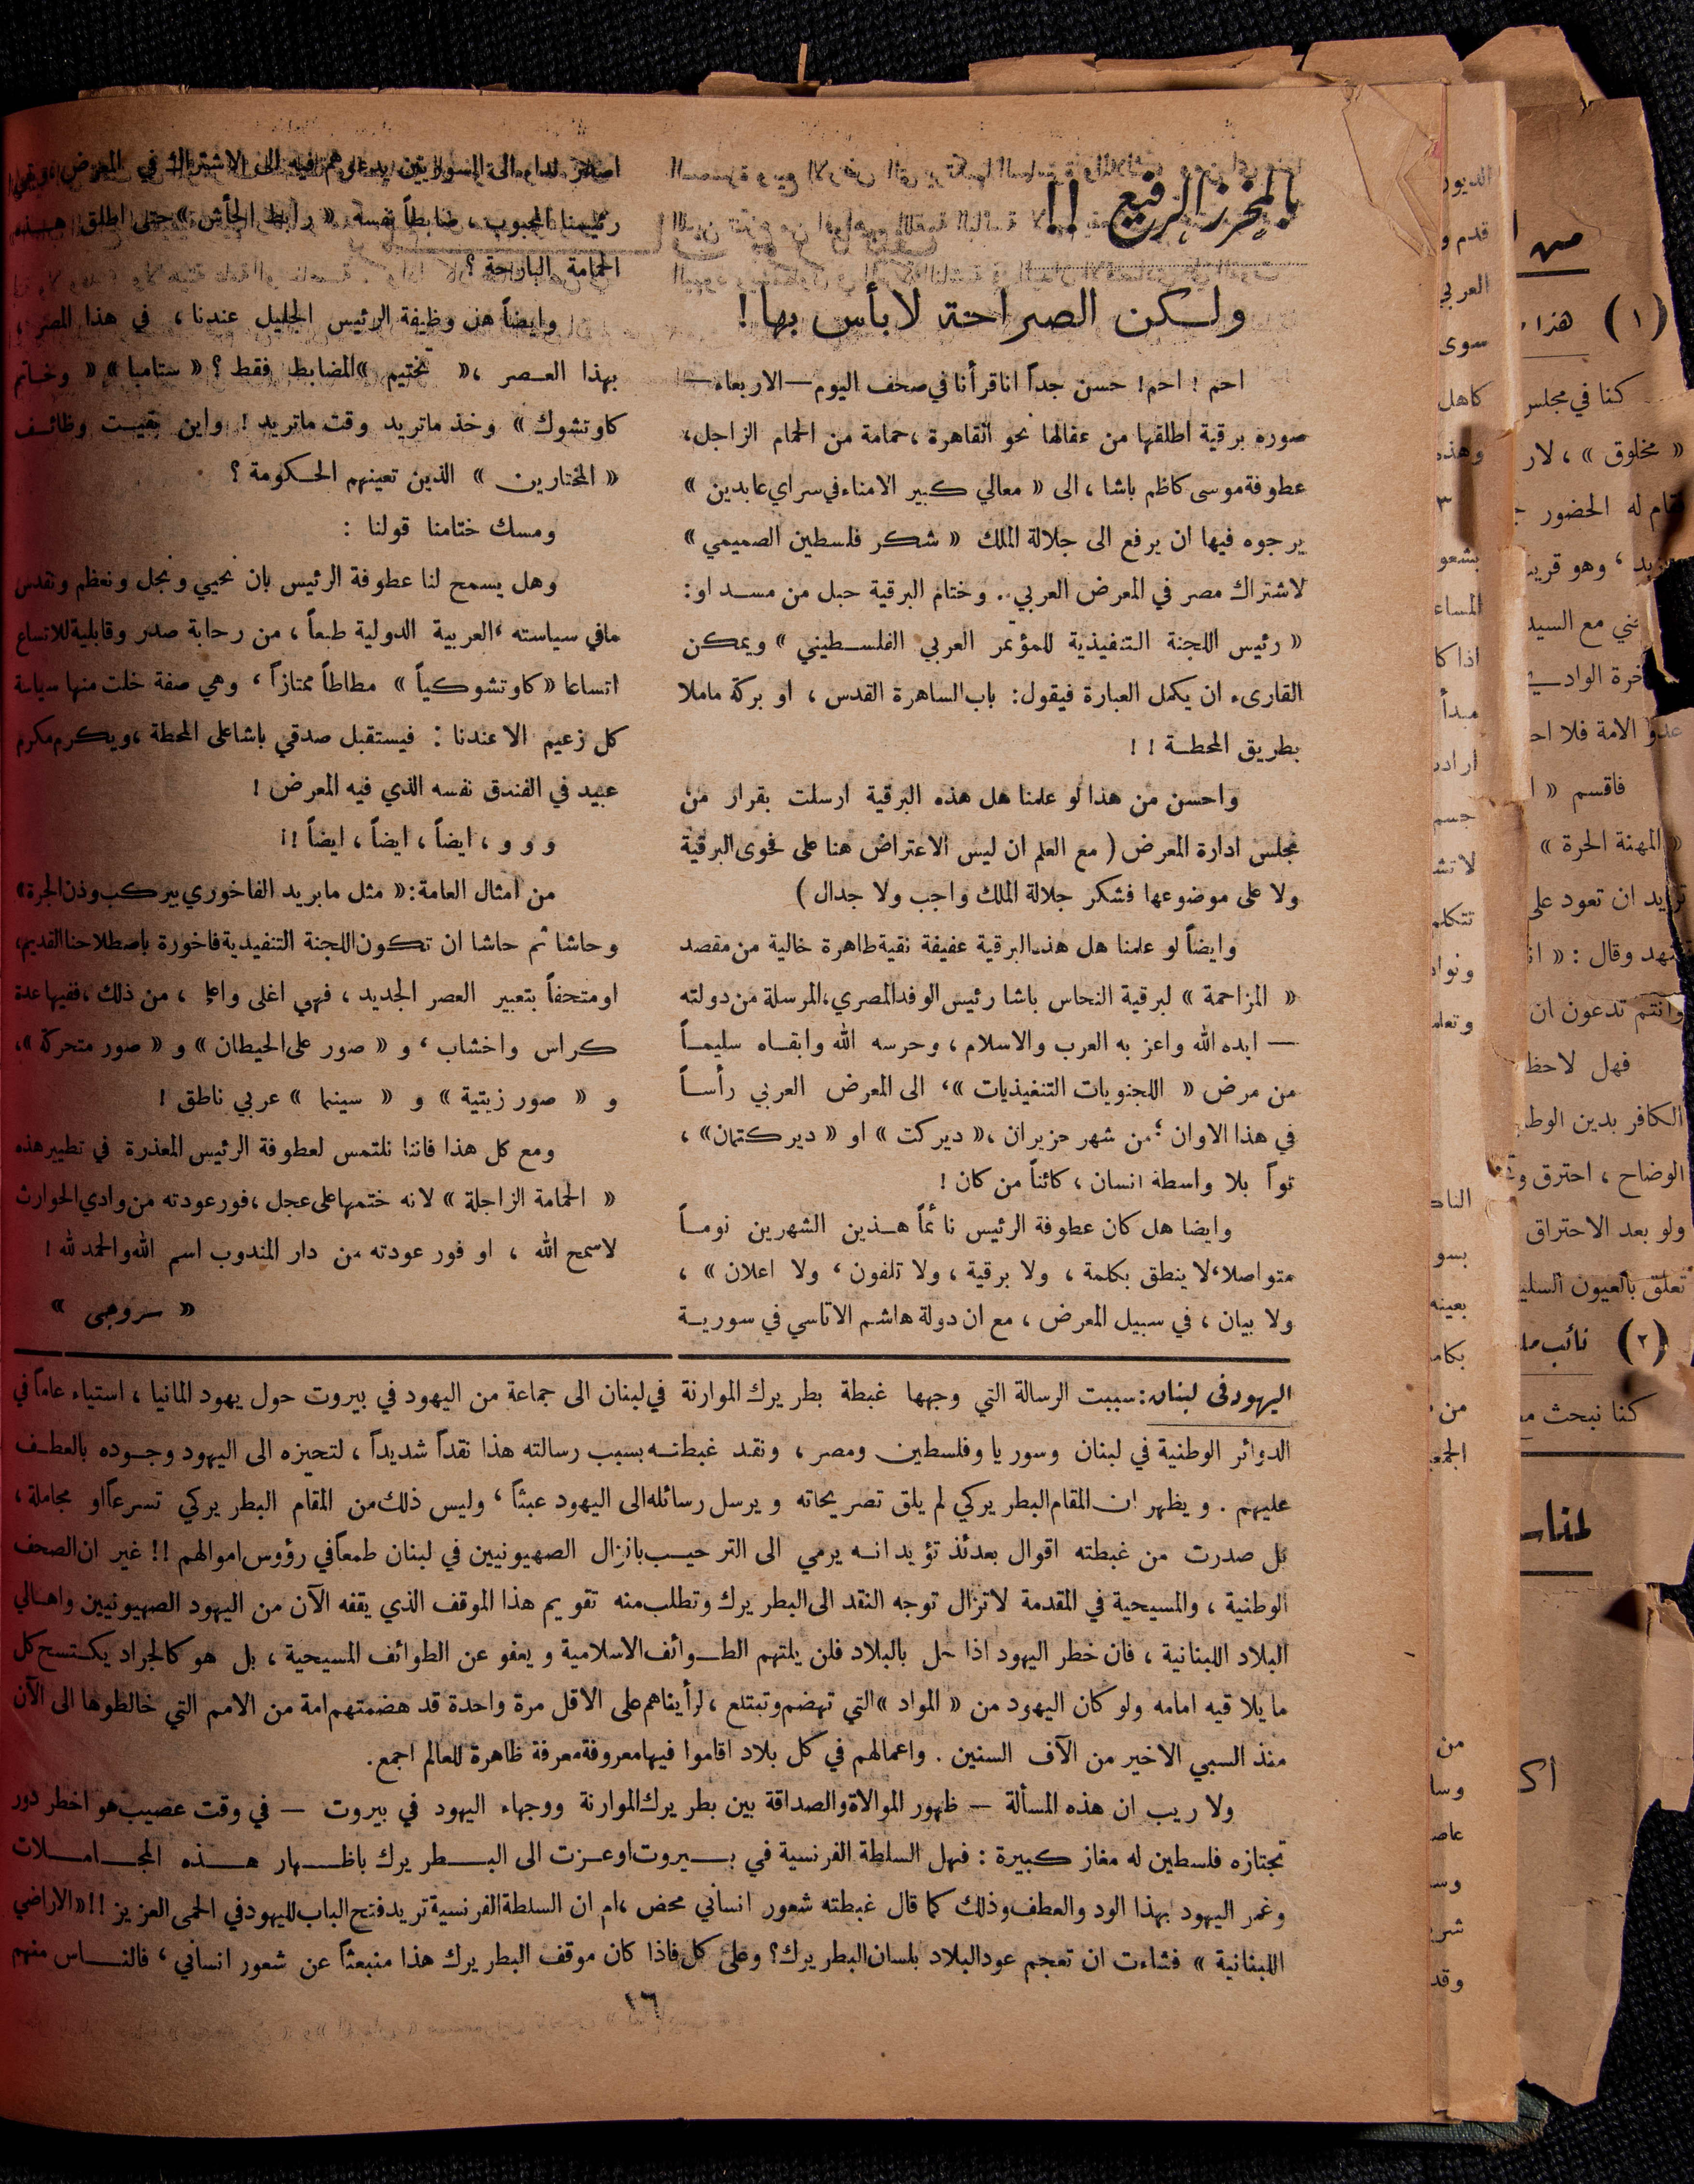 بالمخرز الرفيع !!
ولكن الصراحة لا بأس بها !
احم ! احم ! حسن جداً اننا قرأنا في صحف اليوم — الاربعاء —
صورة برقية اطلقها من عقالها نحو القاهرة ، حمامة من الحمام الزاجل ،
عطوفة موسى كاظم باشا ، الى « معالي كبير الامناء في سراي عابدين »
يرجوه فيها ان يرفع الى جلالة الملك « شكر فلسطين الصميمي »
لاشتراك مصر في المعرض العربي .. وختام البرقية حبل من مسد او :
« رئيس اللجنة التنفيذية للمؤتمر العربي الفلسطيني » ويمكن
القارىء ان يكمل العبارة فيقول : باب الساهرة القدس ، او بركة ماملا
بطريق المحطة ! !
واحسن من هذا لو علمنا هل هذه البرقية ارسلت بقرار من
مجلس ادارة المعرض ( مع العلم ان ليس الاعتراض هنا على فحوى البرقية
ولا على موضوعها فشكر جلالة الملك واجب ولا جدال )
وايضاً لو علمنا هل هذه البرقية عفيفة نقية طاهرة خالية من مقصد
« المزاحمة » لبرقية النحاس باشا رئيس الوفد المصري ، المرسلة من دولته
— ايده الله واعز به العرب والاسلام ، وحرسه الله وابقاه سليماً
من مرض « اللجنويات التنفيذيات » ، الى المعرض العربي رأساً
في هذا الاوان ؛ من شهر حزيران ، « ديركت » او « ديركتمان » ،
تواً بلا واسطة انسان ، كائناً من كان !
وايضا هل كان عطوفة الرئيس نائماً هذين الشهرين نوماً
متواصلا ، لا ينطق بكلمة ، ولا برقية ، ولا تلفون ، ولا اعلان » ،
ولا بيان ، في سبيل المعرض ، مع ان دولة هاشم الاتاسي في سورية
اصدر نداء الى السوريين يدعوهم فيه الى الاشتراك في المعرض ، وبقي
رئيسنا المحبوب ، ضابطاً نفسه « رابط الجأش » حتى اطلق هذه
الحمامة البارحة ؟
وايضاً هل وظيفة الرئيس الجليل عندنا ، في هذا المصر ،
بهذا العصر ، « تختيم » المضابط فقط ؟ « ستامبا » « وخاتم
كاوتشوك » وخذ ماتريد وقت ماتريد ! واين بقيت وظائف
« المختارين » الذين تعينهم الحكومة ؟
ومسك ختامنا قولنا :
وهل يسمح لنا عطوفة الرئيس بان نحيي ونجل ونعظم ونقدس
مافي سياسته ، العربية الدولية طبعاً ، من رحابة صدر وقابلية للاتساع
اتساعا « كاوتشوكياً » مطاطاً ممتازاً ، وهي صفة خلت منها سياسة
كل زعيم الا عندنا : فيستقبل صدقي باشا على المحطة ، ويكرم مكرم
عبيد في الفندق نفسه الذي فيه المعرض !
و و و ، ايضاً ، ايضاً ، ايضاً ! !
من امثال العامة : « مثل مابريد الفاخوري بيركب وذن الجرة »
وحاشا ثم حاشا ان تكون اللجنة التنفيذية فاخورة باصطلاحنا القديم ،
او متحفاً بتعبير العصر الجديد ، فهي اغلى واعلى ، من ذلك ، ففيها عدة
كراس واخشاب ، و « صور على الحيطان » و « صور متحركة » ،
و « صور زيتية » و « سينما » عربي ناطق !
ومع كل هذا فاننا نلتمس لعطوفة الرئيس المعذرة في تطيير هذه
« الحمامة الزاجلة » لانه ختمها على عجل ، فور عودته من وادي الحوارث
لاسمح الله ، او فور عودته من دار المندوب اسم الله والحمد لله !
« سروجي »
اليهود في لبنان : سببت الرسالة التي وجهها غبطة بطريرك الموارنة في لبنان الى جماعة من اليهود في بيروت حول يهود المانيا ، استياء عاماً في
الدوائر الوطنية في لبنان وسوريا وفلسطين ومصر ، ونقد غبطته بسبب رسالته هذا نقداً شديداً ، لتحيزه الى اليهود وجوده بالعطف
عليهم . ويظهر ان المقام البطريركي لم يلق تصريحاته ويرسل رسائله الى اليهود عبثاً ، وليس ذلك من المقام البطريركي تسرعاً او مجاملة ،
بل صدرت من غبطته اقوال بعدئذ تؤيد انه يرمي الى الترحيب بانزال الصهيونيين في لبنان طمعاً في رؤوس اموالهم !! غير ان الصحف
الوطنية ، والمسيحية في المقدمة لاتزال توجه النقد الى البطريرك وتطلب منه تقويم هذا الموقف الذي يقفه الآن من اليهود الصهيونيين واهالي
البلاد اللبنانية ، فان خطر اليهود اذا حل بالبلاد فلن يلتهم الطوائف الاسلامية ويعفو عن الطوائف المسيحية ، بل هو كالجراد يكتسح كل
مايلاقيه امامه ولو كان اليهود من « المواد » التي تهضم وتبتلع ، لرأيناهم على الاقل مرة واحدة قد هضمتهم امة من الامم التي خالطوها الى الآن
منذ السبي الاخير من الآف السنين . واعمالهم في كل بلاد اقاموا فيها معروفة معرفة ظاهرة للعالم اجمع .
ولا ريب ان هذه المسألة — ظهور الموالاة والصداقة بين بطريرك الموارنة ووجهاء اليهود في بيروت — في وقت عصيب هو اخطر دور
تجتازه فلسطين له مغاز كبيرة : فهل السلطة الفرنسية في بيروت اوعزت الى البطريرك باظهار هذه المجاملات
وغمر اليهود بهذا الود والعطف وذلك كما قال غبطته شعور انساني محض ، ام ان السلطة الفرنسية تريد فتح الباب لليهود في الحمى العزيز !! « الاراضي
اللبنانية » فشاءت ان تعجم عود البلاد بلسان البطريرك ؟ وعلى كل فاذا كان موقف البطريرك هذا منبعثاً عن شعور انساني ، فالناس منهم
١٦
الديور
قدم و
العربي
سوى
كاهل
وهذه
٣
بشعو
المساء
اذا كا
مبدأ
جسم
تتكلم
من
(١) هذا
كنا في مجلس
« مخلوق » ، لار
قام له الحضور
، وهو قريب
ني مع السيد
الامة فلا اح
فاقسم « ا
« المهنة الحرة »
تريد ان تعود على
وقال : « ان
وانتم تدعون ان
فهل لاحظ
الكافر بدين الوط
الوضاح ، احترق و
ولو بعد الاحتراق
تعلق بالعيون السلي
(٢) نائب
كنا نبحث